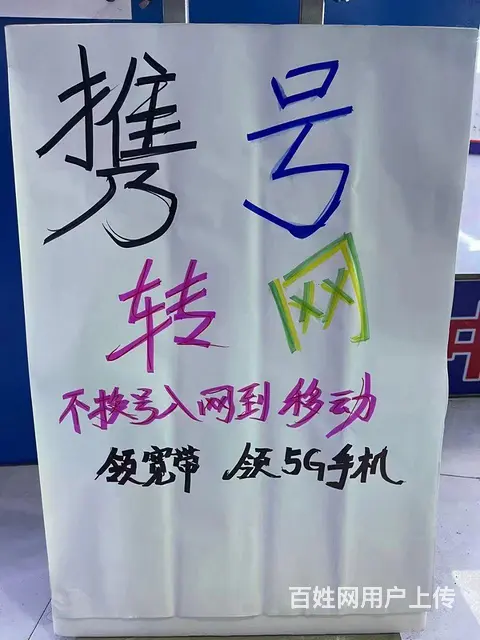 携号
转网
不换号入网到移动
领宽带 领5G手机
中
百姓网用户上传